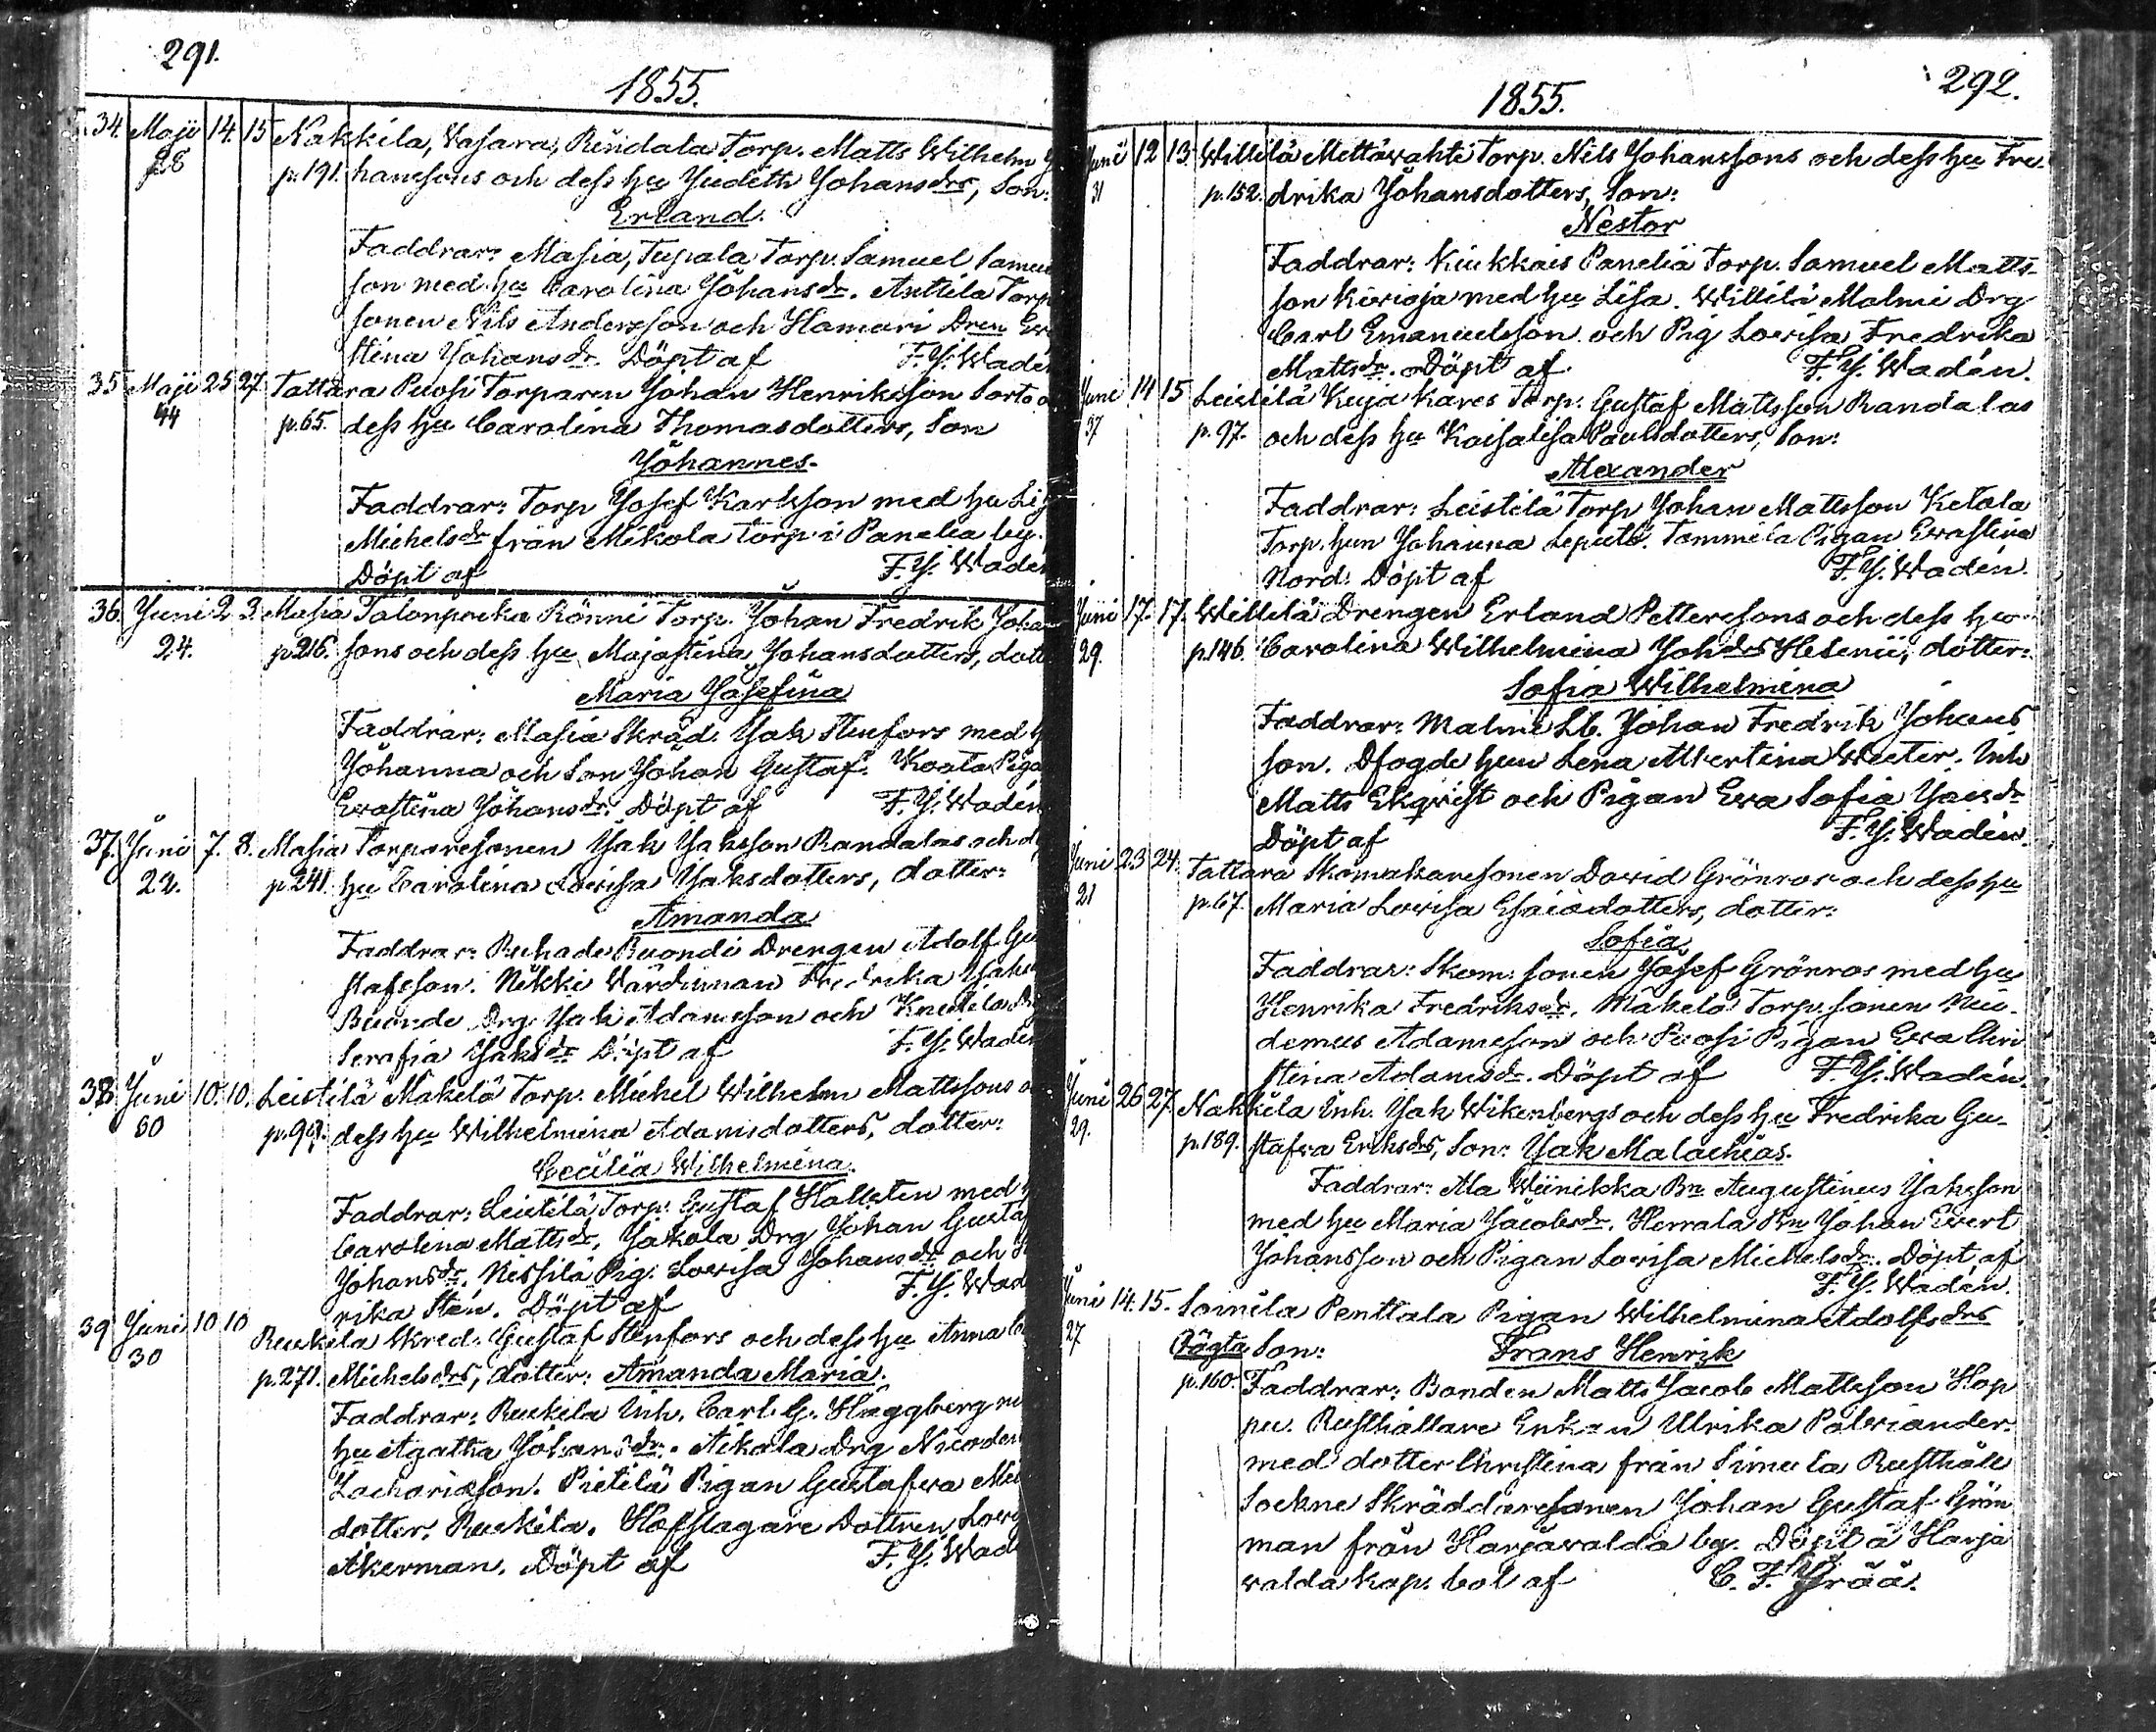 291.
1855.
34. Maji 14. 15 Nakkila, Wasara, Rindala Torp. Matts Wilhelm
28 p. 191. hanssons och dess hu Judith Johansdrs, Son:
Erland.
Faddrar: Masia, Tupala Torp. Samuel Samuel
son med hu Carolina Johansdr. Anttila Torp
sonen Nils Andersson och Hamari Dren
stina Johansdr. Döpt af F. J. Wadén
35 Maji 25 27 Tattara Puosi Torparen Johan Henriksson Sorto
44 p. 65. dess hu Carolina Thomasdotters, Son
Johannes.
Faddrar: Torp Josef Karlsson med hu
Michelsdr från Mikola torp i Panelia by.
Döpt af F. J. Wadén
36. Juni 2 3. Masia Talonpoika Rönni Torp. Johan Fredrik Joha
24. p. 216. sons och dess hu Majastina Johansdotters, dott
Maria Josefina
Faddrar: Masia Skräd. Jak Stenfors med
Johanna och Son Johan Gustaf. Koala Piga
Evastina Johansdr. Döpt af F. J. Wadén
37. Juni 7. 8. Masia Torparesonen Jak Jaksson Randalas och
22. p. 241. hu Carolina Lovisa Jaksdotters, dotter:
Amanda
Faddrar: Ruhade Ruondi Drengen Adolf Gu
stafsson. Nikki Värdinnan Fredrika
Ruonde Drg. Jak Adamsson och
Serafia Jaksdr Döpt af F. J. Wadén
38 Juni 10. 10. Leistilä Mäkelä Torp. Michel Wilhelm Mattssons
60 p. 99. dess hu Wilhelmina Adamsdotters, dotter:
Cecilia Wilhelmina.
Faddrar: Leistilä Torp. Gustaf Hallsten med
Carolina Mattsdr. Jakola Drg Johan Gusta
Johansdr. Kessilä Pig. Lovisa Johansdr och
rika Sten. Döpt af F. J. Wad
39 Juni 10 10 Ruskila Skred. Gustaf Stenfors och dess hu Anna
30 p. 271. Michelsdrs, dotter: Amanda Maria.
Faddrar: Ruskila Inh. Carl G. Häggberg
hu Agatha Johansdr. Aikala Drg Nicodem
Zachariasson. Pietilä Pigan Gustafva
dotter. Ruskila. Hofslagare Dottren
Åkerman. Döpt af F. J. Wad
292.
1855.
Juni 12 13. Willilä Mettäwahti Torp. Nils Johanssons och dess hu Fre-
31 p. 152. drika Johansdotters, Son:
Nestor
Faddrar: Kiukkais Panelia Torp. Samuel Matts-
son Kivioja med hu Lisa. Willilä Malmi Drg
Carl Emanuelsson och Pig Lovisa Fredrika
Mattsdr. Döpt af F. J. Wadén.
Juni 14 15 Leistilä Kuja Kares Torp. Gustaf Mattsson Randalas
37 p. 97. och dess hu Kaisalisa Paulsdotters, Son:
Alexander
Faddrar: Leistilä Torp Johan Mattsson Ketola
Torp. hun Johanna Tommila Pigan Evastina
Nord: Döpt af F. J. Wadén.
Juni 17. 17. Willilä Drengen Erland Petterssons och dess hu
29. p. 146. Carolina Wilhelmina Johdrs Helenii, dotter:
Sofia Wilhelmina
Faddrar: Malmi Lb. Johan Fredrik Johans
son. Dfogde hun Lena Albertina Wester. Inh
Matts Ekqvist och Pigan Eva Sofia
Döpt af F. J. Wadén.
Juni 23 24. Tattara Skomakaresonen David Grönros och dess hu
21 p. 67. Maria Lovisa Esaiædotters, dotter:
Sofia.
Faddrar: Skom. Sonen Josef Grönros med hu
Henrika Fredriksdr. Mäkelä Torp. sonen
demus Adamsson och Puosi Pigan Eva Chri
stina Adamsdr. Döpt af F. J. Wadén.
Juni 26 27. Nakkila Inh. Jak Wikenbergs och dess hu Fredrika Gu-
29. p. 189. stafva Eriksdrs, Son: Jak Malachias.
Faddrar: Ala Wiinikka Bn Augustinus Jaksson
med hu Maria Jacobsdr. Herrala Bn Johan Evert
Johansson och Pigan Lovisa Michelsdr. Döpt af
F. J. Wadén.
Juni 14. 15. Soinila Penttala Pigan Wilhelmina Adolfsdrs
27 Oägta Son: Frans Henrik
p. 160. Faddrar: Bonden Matts Jacob Mattsson Hop
pu. Rusthållare Enkan Ulrika Palviander
med dotter Christina från Simula Rusthåll
Sockne Skräddaresonen Johan Gustaf Grön
man från Harjavalda by. Döpt å Harja
valda Kap. bol af C. F. Grää.